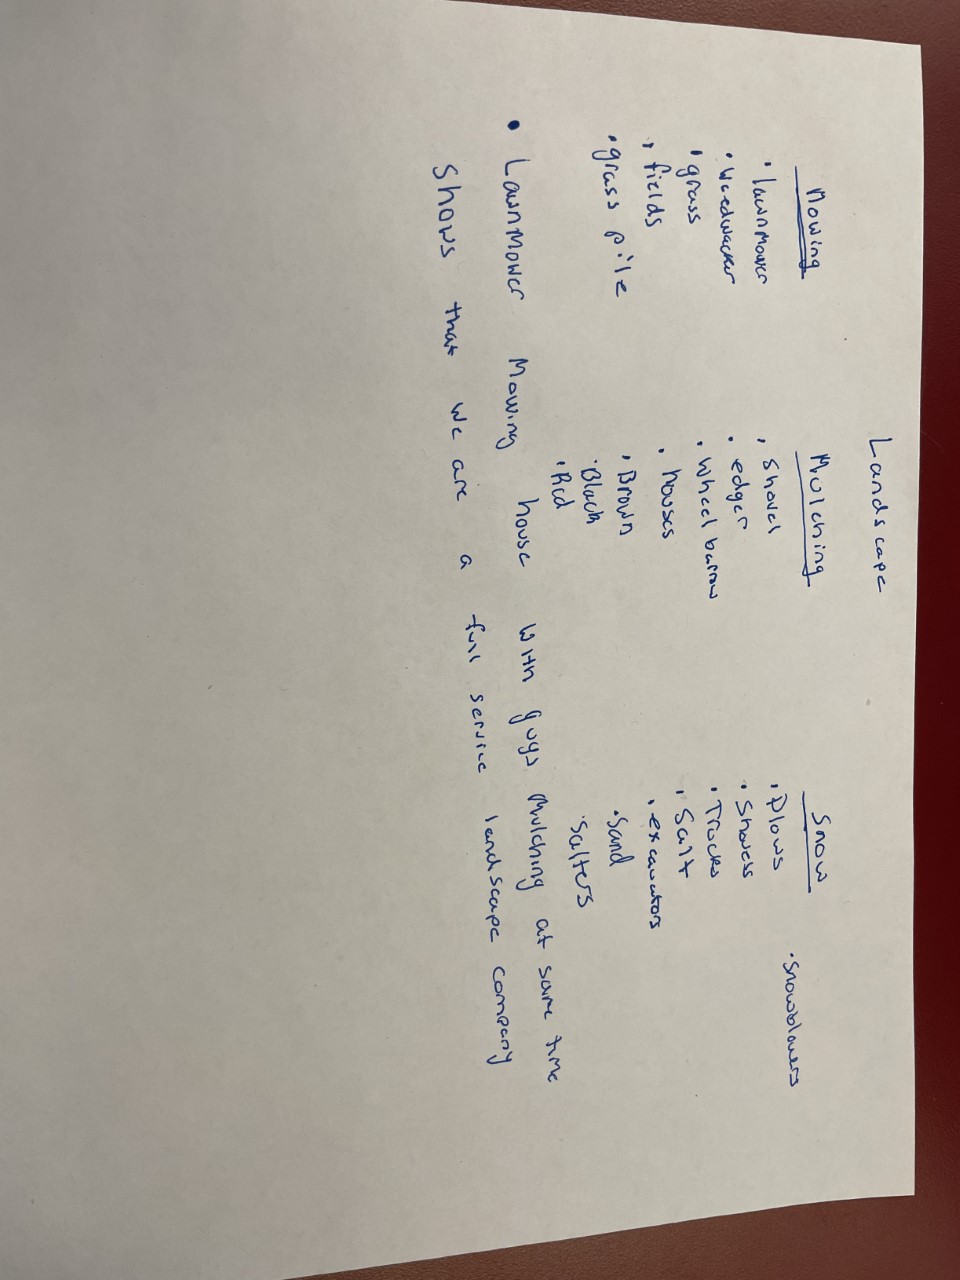 Landscape
Mowing
• lawnmower
• weedwacker
• grass
• fields
• grass pile
Mulching
• shovel
• edger
• wheel barrow
• houses
• Brown
• Black
• Red
Snow
• Plows
• Snowblowers
• Shovels
• Trucks
• Salt
• excavators
• Sand
• Salters
• LawnMower Mowing house with guys Mulching at same time
Shows that we are a full service landscape company